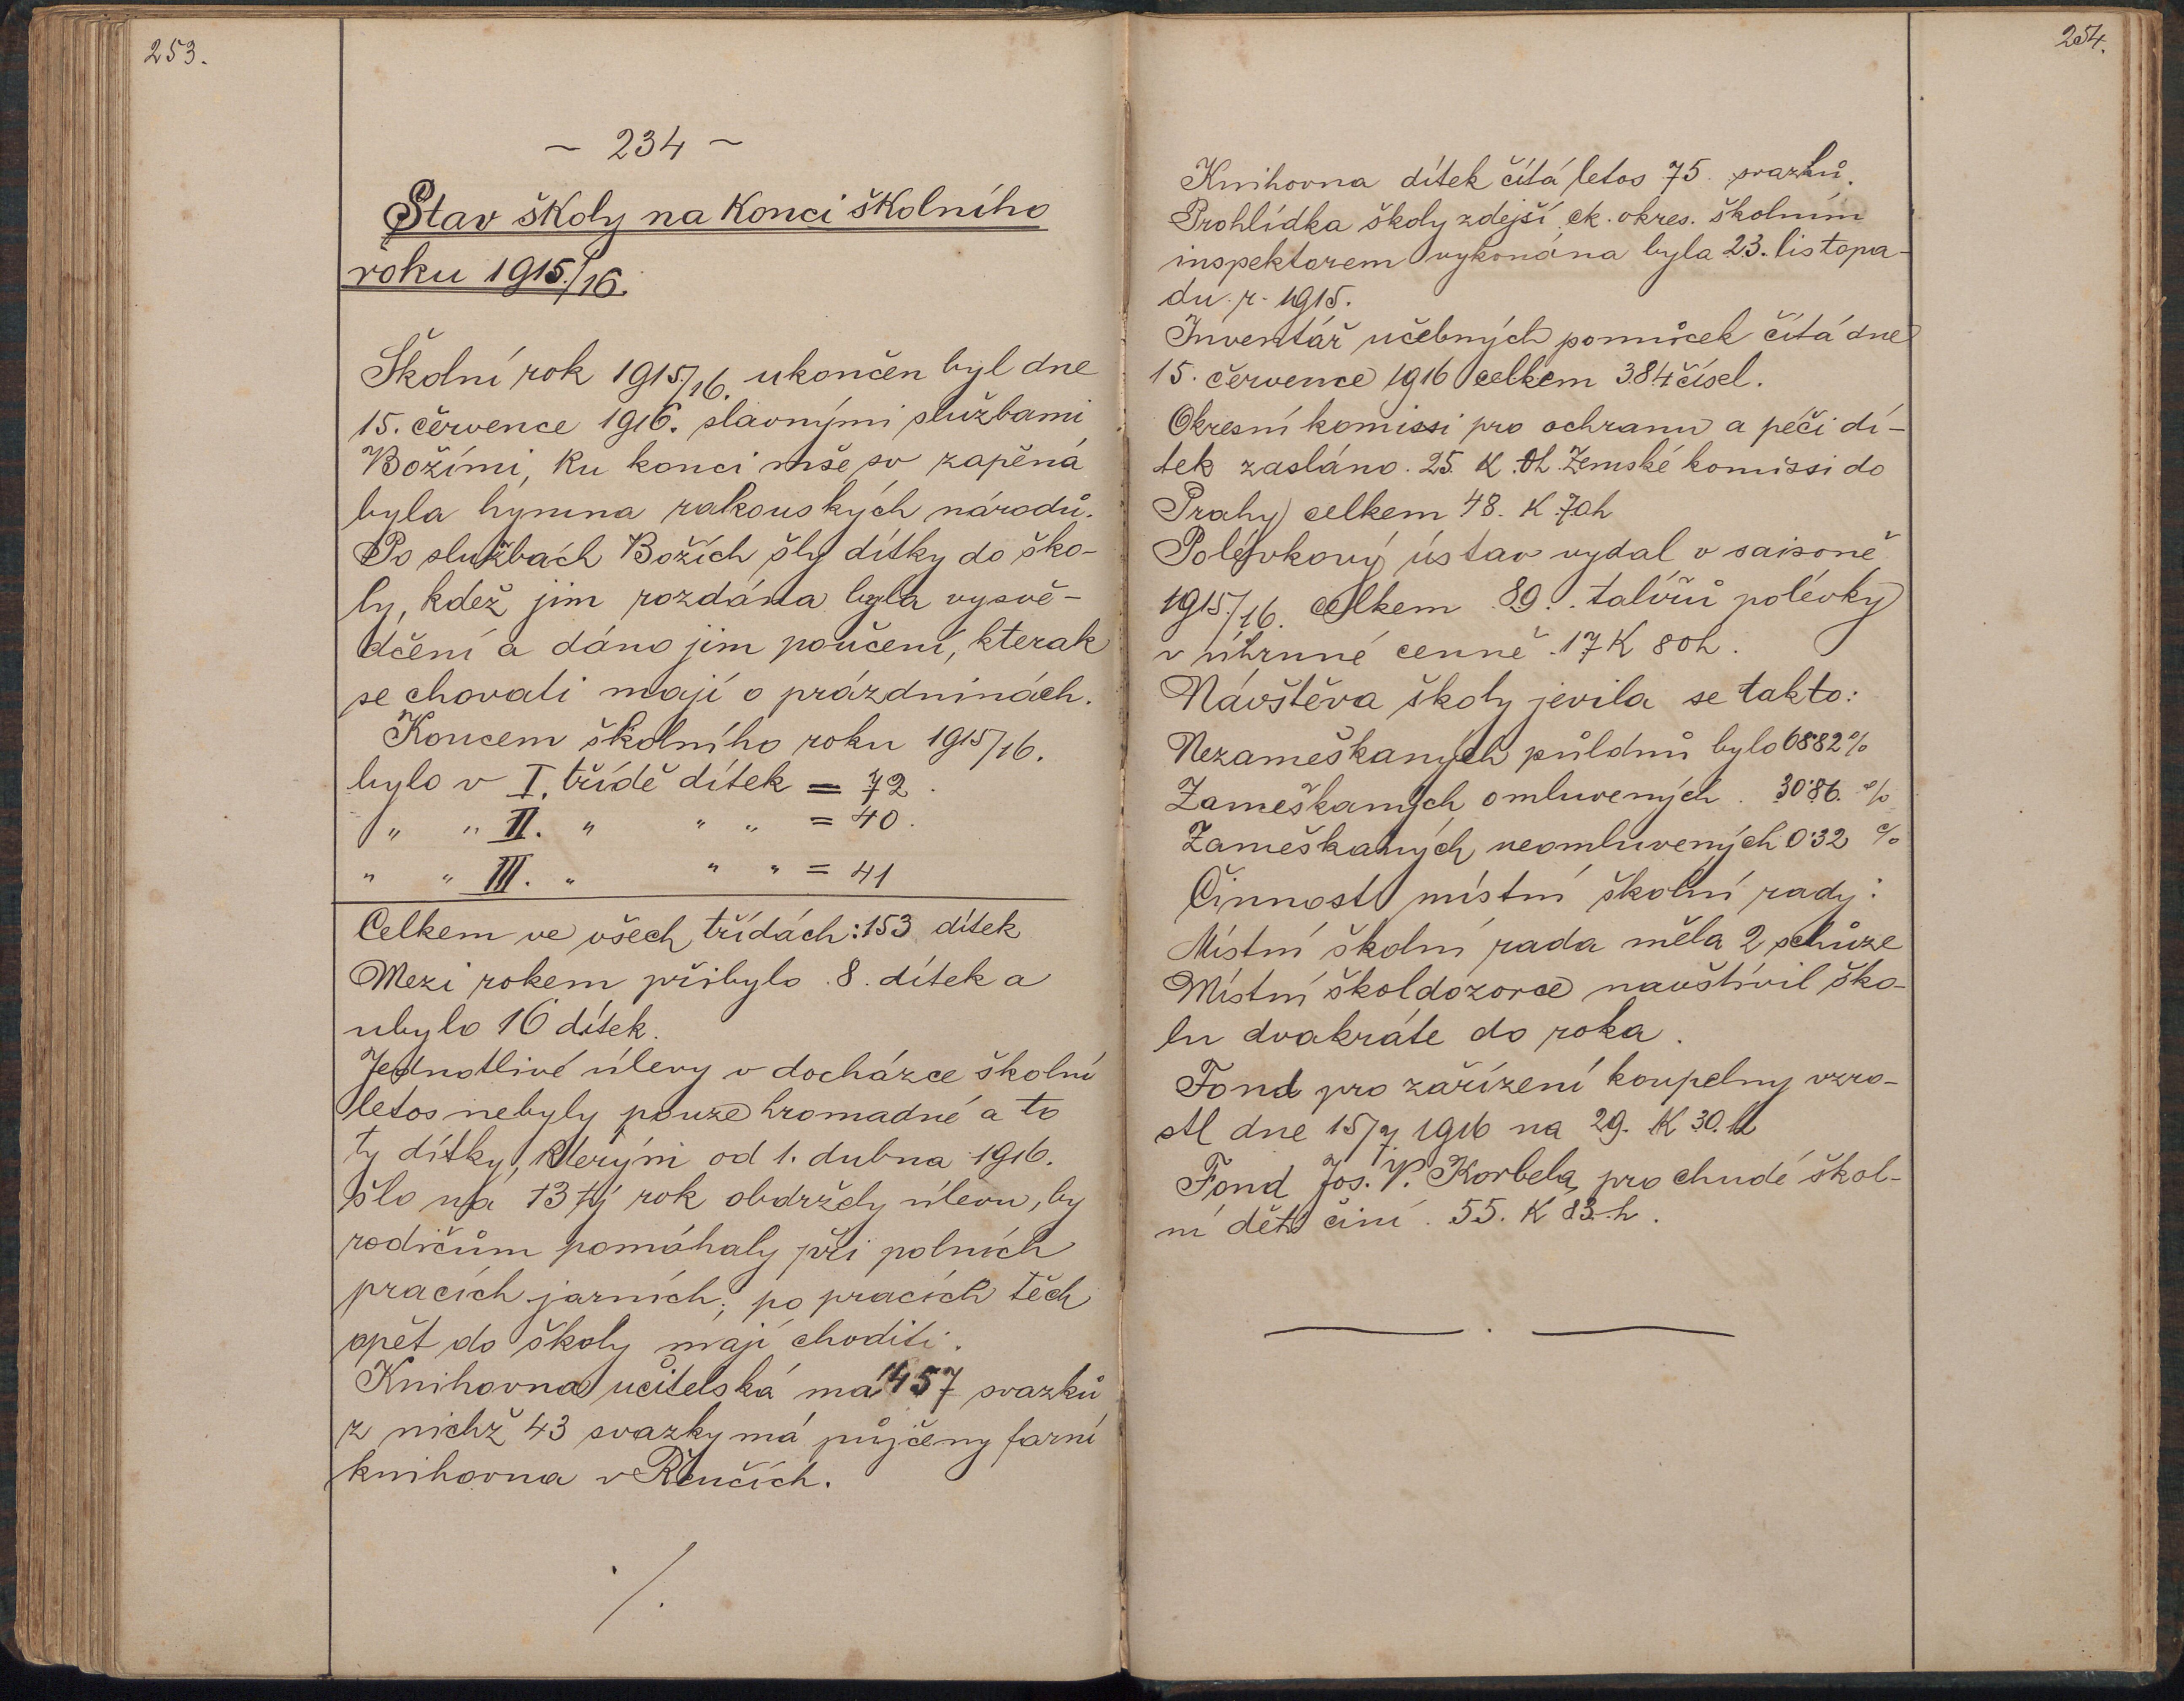 253.
~ 234 ~
Stav školy na konci školního
roku 1915./16.
Školní rok 1915./16. ukončen byl dne
15. července 1916. slavnými službami
Božími, ku konci mše sv zapěna
byla hymna rakouských národů.
Po službách Božích šly dítky do ško-
ly, kdež jim rozdána byla vysvě-
dčení a dáno jim poučení, kterak
se chovati mají o prázdninách.
Koncem školního roku 1915/16.
bylo v I. třídě dítek = 72.
" " II. " " " = 40.
" " III. " " " = 41
Celkem ve všech třídách: 153 dítek
Mezi rokem přibylo 8. dítek a
ubylo 16 dítek.
Jednotlivé úlevy v docházce školní
letos nebyly pouze hromadné a to
ty dítky, kterým od 1. dubna 1916.
šlo na 13tý rok obdržely úlevu, by
rodičům pomáhaly při polních
pracích jarních; po pracích těch
opět do školy mají choditi.
Knihovna učitelská má 457 svazků
z nichž 43 svazky má půjčeny farní
knihovna v Řenčích.
./.
254.
Knihovna dítek čítá letos 75. svazků.
Prohlídka školy zdejší ck. okres. školním
inspektorem vykonána byla 23. listopa-
du r. 1915.
Inventář učebných pomůcek čítá dne
15. července 1916 celkem 384 čísel.
Okresní komissi pro ochranu a péči dí-
tek zasláno. 25. K 0h. Zemské komissi do
Prahy celkem 48. K 70h
Polévkový ústav vydal v saisoně
1915./16. celkem 89. talířů polévky
v úhrnné cenně 17 K 80h.
Návštěva školy jevila se takto:
Nezameškaných půldnů bylo 68·82%
Zameškaných omluvených. 30·86. %
Zameškaných neomluvených 0·32 %
Činnost místní školní rady:
Místní školní rada měla 2 schůze
Místní školdozorce navštívil ško-
lu dvakráte do roka.
Fond pro zařízení koupelny vzro-
stl dne 15/7. 1916 na 29. K 30. h
Fond Jos. V. Korbela pro chudé škol-
ní děti činí. 55. K 83. h.